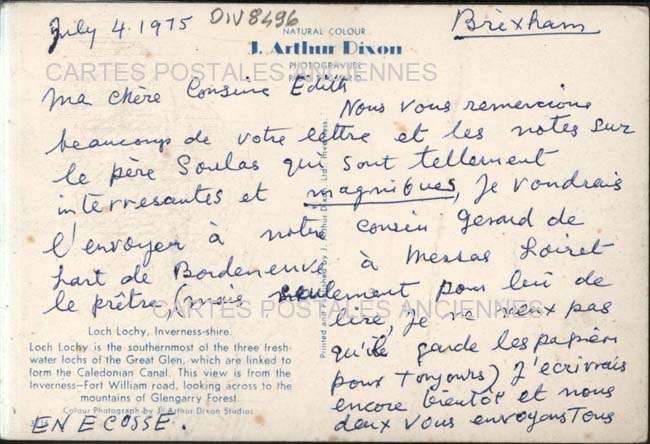 July 4.1975 DIV8496 Brixham
NATURAL COLOUR
J. Arthur Dixon
PHOTOGRAVURE
CARTES POSTALES ANCIENNES
Ma chère Cousine Edith
Nous vous remercions
beaucoups de votre lettre et les notes sur
le père Soulas qui sont tellement
interresantes et magniques, Je voudrais
l'envoyer à notre cousin Gerard de
hart de Bordeneuve à Messas Loiret
le prêtre (mais seulement pour lui de
CARTES POSTALES ANCIENNES
lire, Je ne veux pas
qu'il garde les papiers
pour toujours) J'écrivais
encore bientôt et nous
deux vous envoyons tous
Printed and Published by J. Arthur Dixon Ltd., Inverness.
Loch Lochy, Inverness-shire.
Loch Lochy is the southernmost of the three fresh-
water lochs of the Great Glen, which are linked to
form the Caledonian Canal. This view is from the
Inverness—Fort William road, looking across to the
mountains of Glengarry Forest.
Colour Photograph by J. Arthur Dixon Studios.
EN ECOSSE.